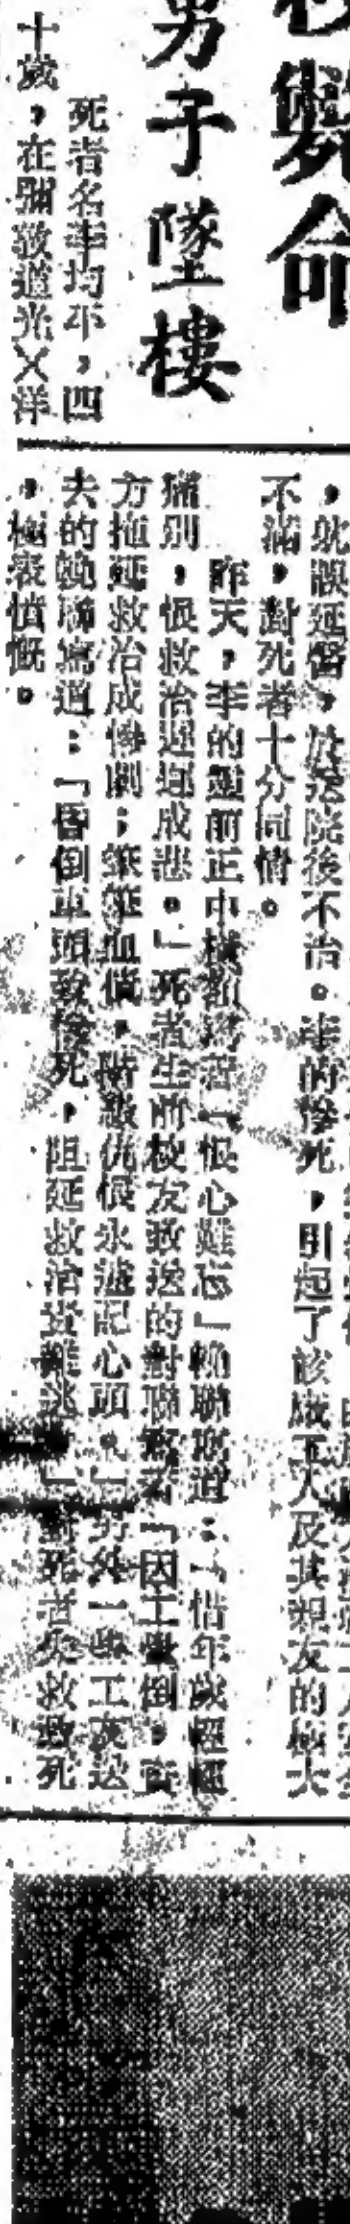 斃命
男子墜樓
死者名李均平,四
十歲,在彌敦道光X洋
,就誤延醫,於送院後不治。李的慘死,引起了該廠工人及其親友的極大
不滿,對死者十分同情。
昨天,李的靈前正中橫額寫着「恨心難忘」輓聯寫道:「惜年歲輕輕
痛別,恨救治遲遲成悲。」死者生前校友致送的對聯寫着「因工暈倒,資
方拖延救治成慘劇;筆筆血債,階級仇恨永遠記心頭。」另外一些工友送
去的輓聯寫道:「昏倒車頭致慘死,阻延救治責難逃」對死者失救致死
,極表憤慨。